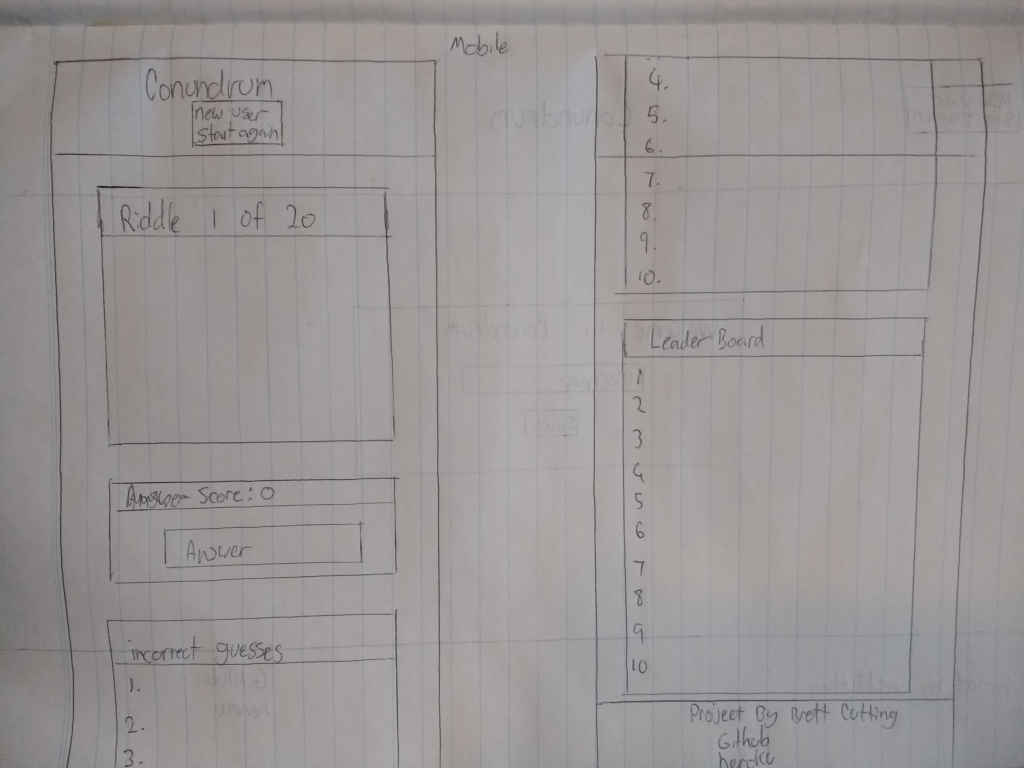 Mobile
Conundrum
new user
start again
Riddle 1 of 20
Score: 0
Answer
incorrect guesses
1.
2.
3.
4.
5.
6.
7.
8.
9.
10.
Leader Board
1
2
3
4
5
6
7
8
9
10
Project By Brett Cutting
Github
heroku